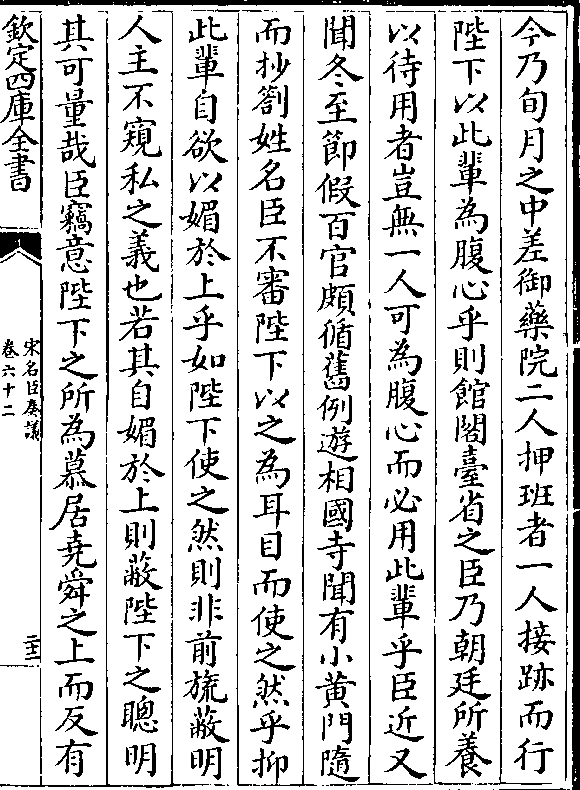 今乃旬月之中差御藥院二人押班者一人接跡而行
陛下以此輩為腹心乎則館閣臺省之臣乃朝廷所養
以待用者豈無一人可為腹心而必用此輩乎臣近又
聞冬至節假百官頗循舊例遊相國寺聞有小黃門隨
而抄劄姓名臣不審陛下以之為耳目而使之然乎抑
此輩自欲以媚於上乎如陛下使之然則非前旒蔽明
人主不窺私之義也若其自媚於上則蔽陛下之聰明
其可量哉臣竊意陛下之所為慕居堯舜之上而反有
欽定四庫全書
宋名臣奏議
卷六十二
二十二